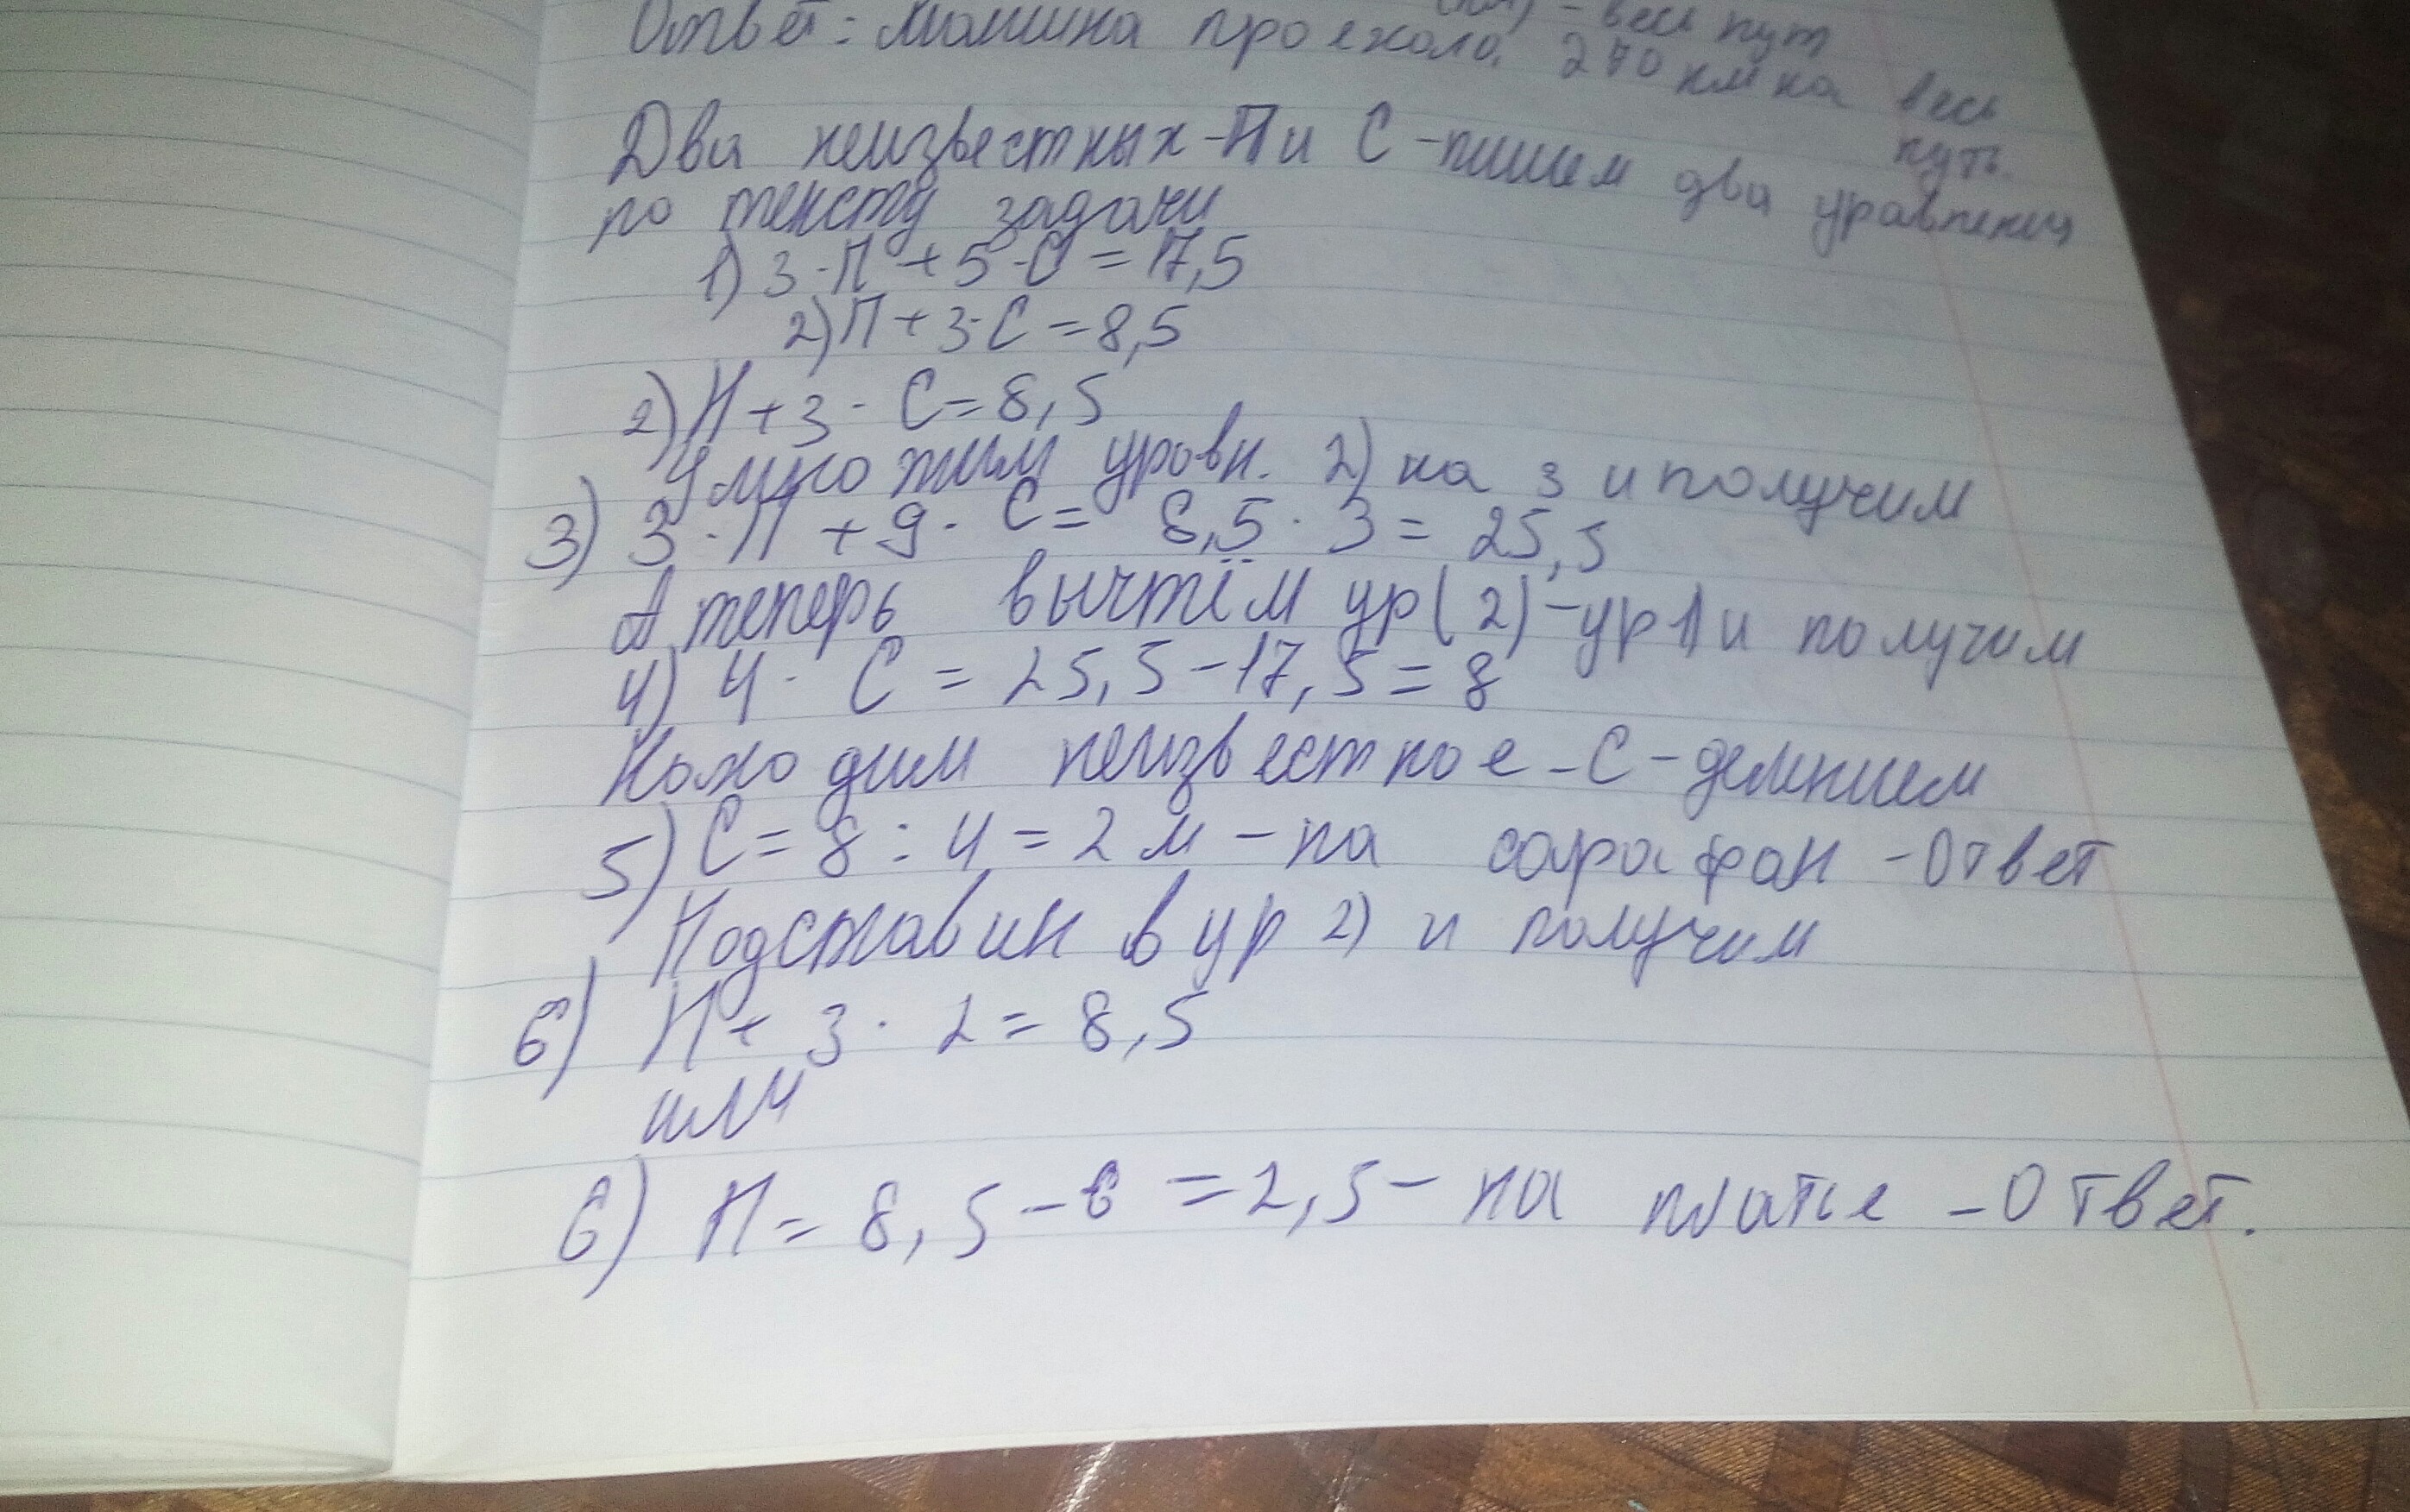 (км) - весь пут
Ответ: Машина проехала 270 км на весь
путь.
Два неизвестных - П и С - пишем два уравнения
по тексту задачи
1) 3·П + 5·С = 17,5
2) П + 3·С = 8,5
2) П + 3·С = 8,5
Умножим уравн. 2) на 3 и получим
3) 3·П + 9·С = 8,5·3 = 25,5
А теперь вычтём ур(2) - ур1) и получим
4) 4·С = 25,5 - 17,5 = 8
Находим неизвестное - С - делением
5) С = 8 : 4 = 2 м - на сарафан - Ответ
Подставин в ур 2) и получим
6) П + 3·2 = 8,5
или
6) П = 8,5 - 6 = 2,5 - на платье - Ответ.